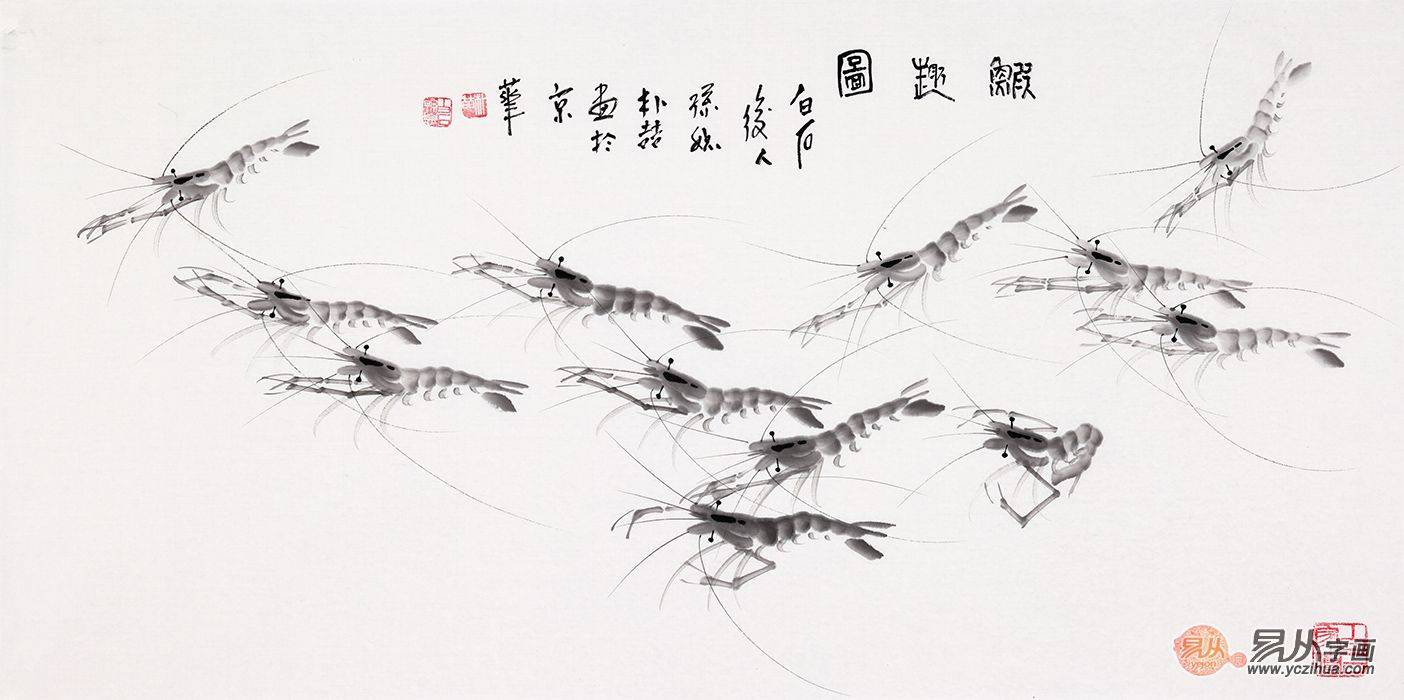 鰕趣圖
白石
後人
孫媳
朴喆
畫於
京
華
易从
yejon
易从字画
www.yczihua.com